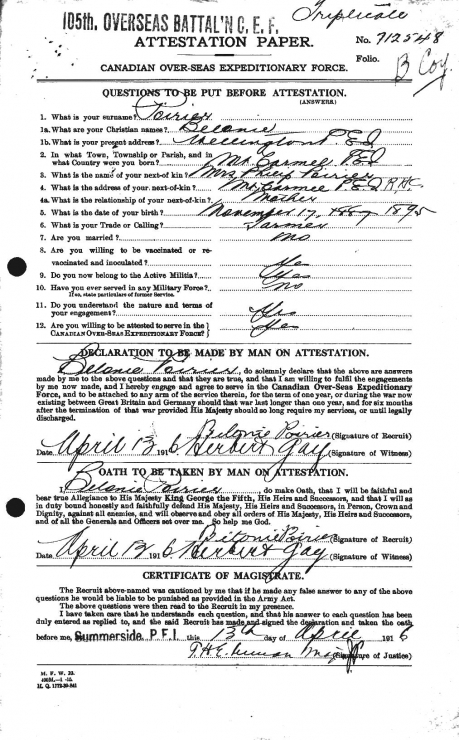 Triplicate
105th. OVERSEAS BATTAL'N C. E. F.
ATTESTATION PAPER.
No. 712548
Folio.
B Coy
CANADIAN OVER-SEAS EXPEDITIONARY FORCE.
QUESTIONS TO BE PUT BEFORE ATTESTATION.
(ANSWERS)
1. What is your surname? Poirier
1a. What are your Christian names? Belonie
1b. What is your present address? Wellington P.E.I
2. In what Town, Township or Parish, and in
what Country were you born? Mt. Carmel P.E.I
3. What is the name of your next-of-kin? Mrs Philip Poirier
4. What is the address of your next-of-kin? Mt Carmel P.E.I
4a. What is the relationship of your next-of-kin? Mother
5. What is the date of your birth? November 17, 1895
6. What is your Trade or Calling? Farmer
7. Are you married? no
8. Are you willing to be vaccinated or re-
vaccinated and inoculated? Yes
9. Do you now belong to the Active Militia? Yes
10. Have you ever served in any Military Force? no
If so, state particulars of former Service.
11. Do you understand the nature and terms of
your engagement? Yes
12. Are you willing to be attested to serve in the
CANADIAN OVER-SEAS EXPEDITIONARY FORCE? Yes
DECLARATION TO BE MADE BY MAN ON ATTESTATION.
I, Belonie Poirier, do solemnly declare that the above are answers
made by me to the above questions and that they are true, and that I am willing to fulfil the engagements
by me now made, and I hereby engage and agree to serve in the Canadian Over-Seas Expeditionary
Force, and to be attached to any arm of the service therein, for the term of one year, or during the war now
existing between Great Britain and Germany should that war last longer than one year, and for six months
after the termination of that war provided His Majesty should so long require my services, or until legally
discharged.
Belonie Poirier (Signature of Recruit)
Date April 13 1916 Herbert Gay (Signature of Witness)
OATH TO BE TAKEN BY MAN ON ATTESTATION.
I, Belonie Poirier, do make Oath, that I will be faithful and
bear true Allegiance to His Majesty King George the Fifth, His Heirs and Successors, and that I will as
in duty bound honestly and faithfully defend His Majesty, His Heirs and Successors, in Person, Crown and
Dignity, against all enemies, and will observe and obey all orders of His Majesty, His Heirs and Successors,
and of all the Generals and Officers set over me. So help me God.
Belonie Poirier (Signature of Recruit)
Date April 13 1916 Herbert Gay (Signature of Witness)
CERTIFICATE OF MAGISTRATE.
The Recruit above-named was cautioned by me that if he made any false answer to any of the above
questions he would be liable to be punished as provided in the Army Act.
The above questions were then read to the Recruit in my presence.
I have taken care that he understands each question, and that his answer to each question has been
duly entered as replied to, and the said Recruit has made and signed the declaration and taken the oath
before me, Summerside, P.E.I. this 13th day of April 1916
(Signature of Justice)
M. F. W. 23.
H. Q. 1772-39-841